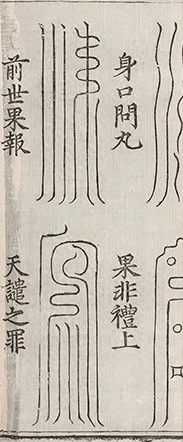 身口問丸
果非禮上
前世果報
天譴之罪